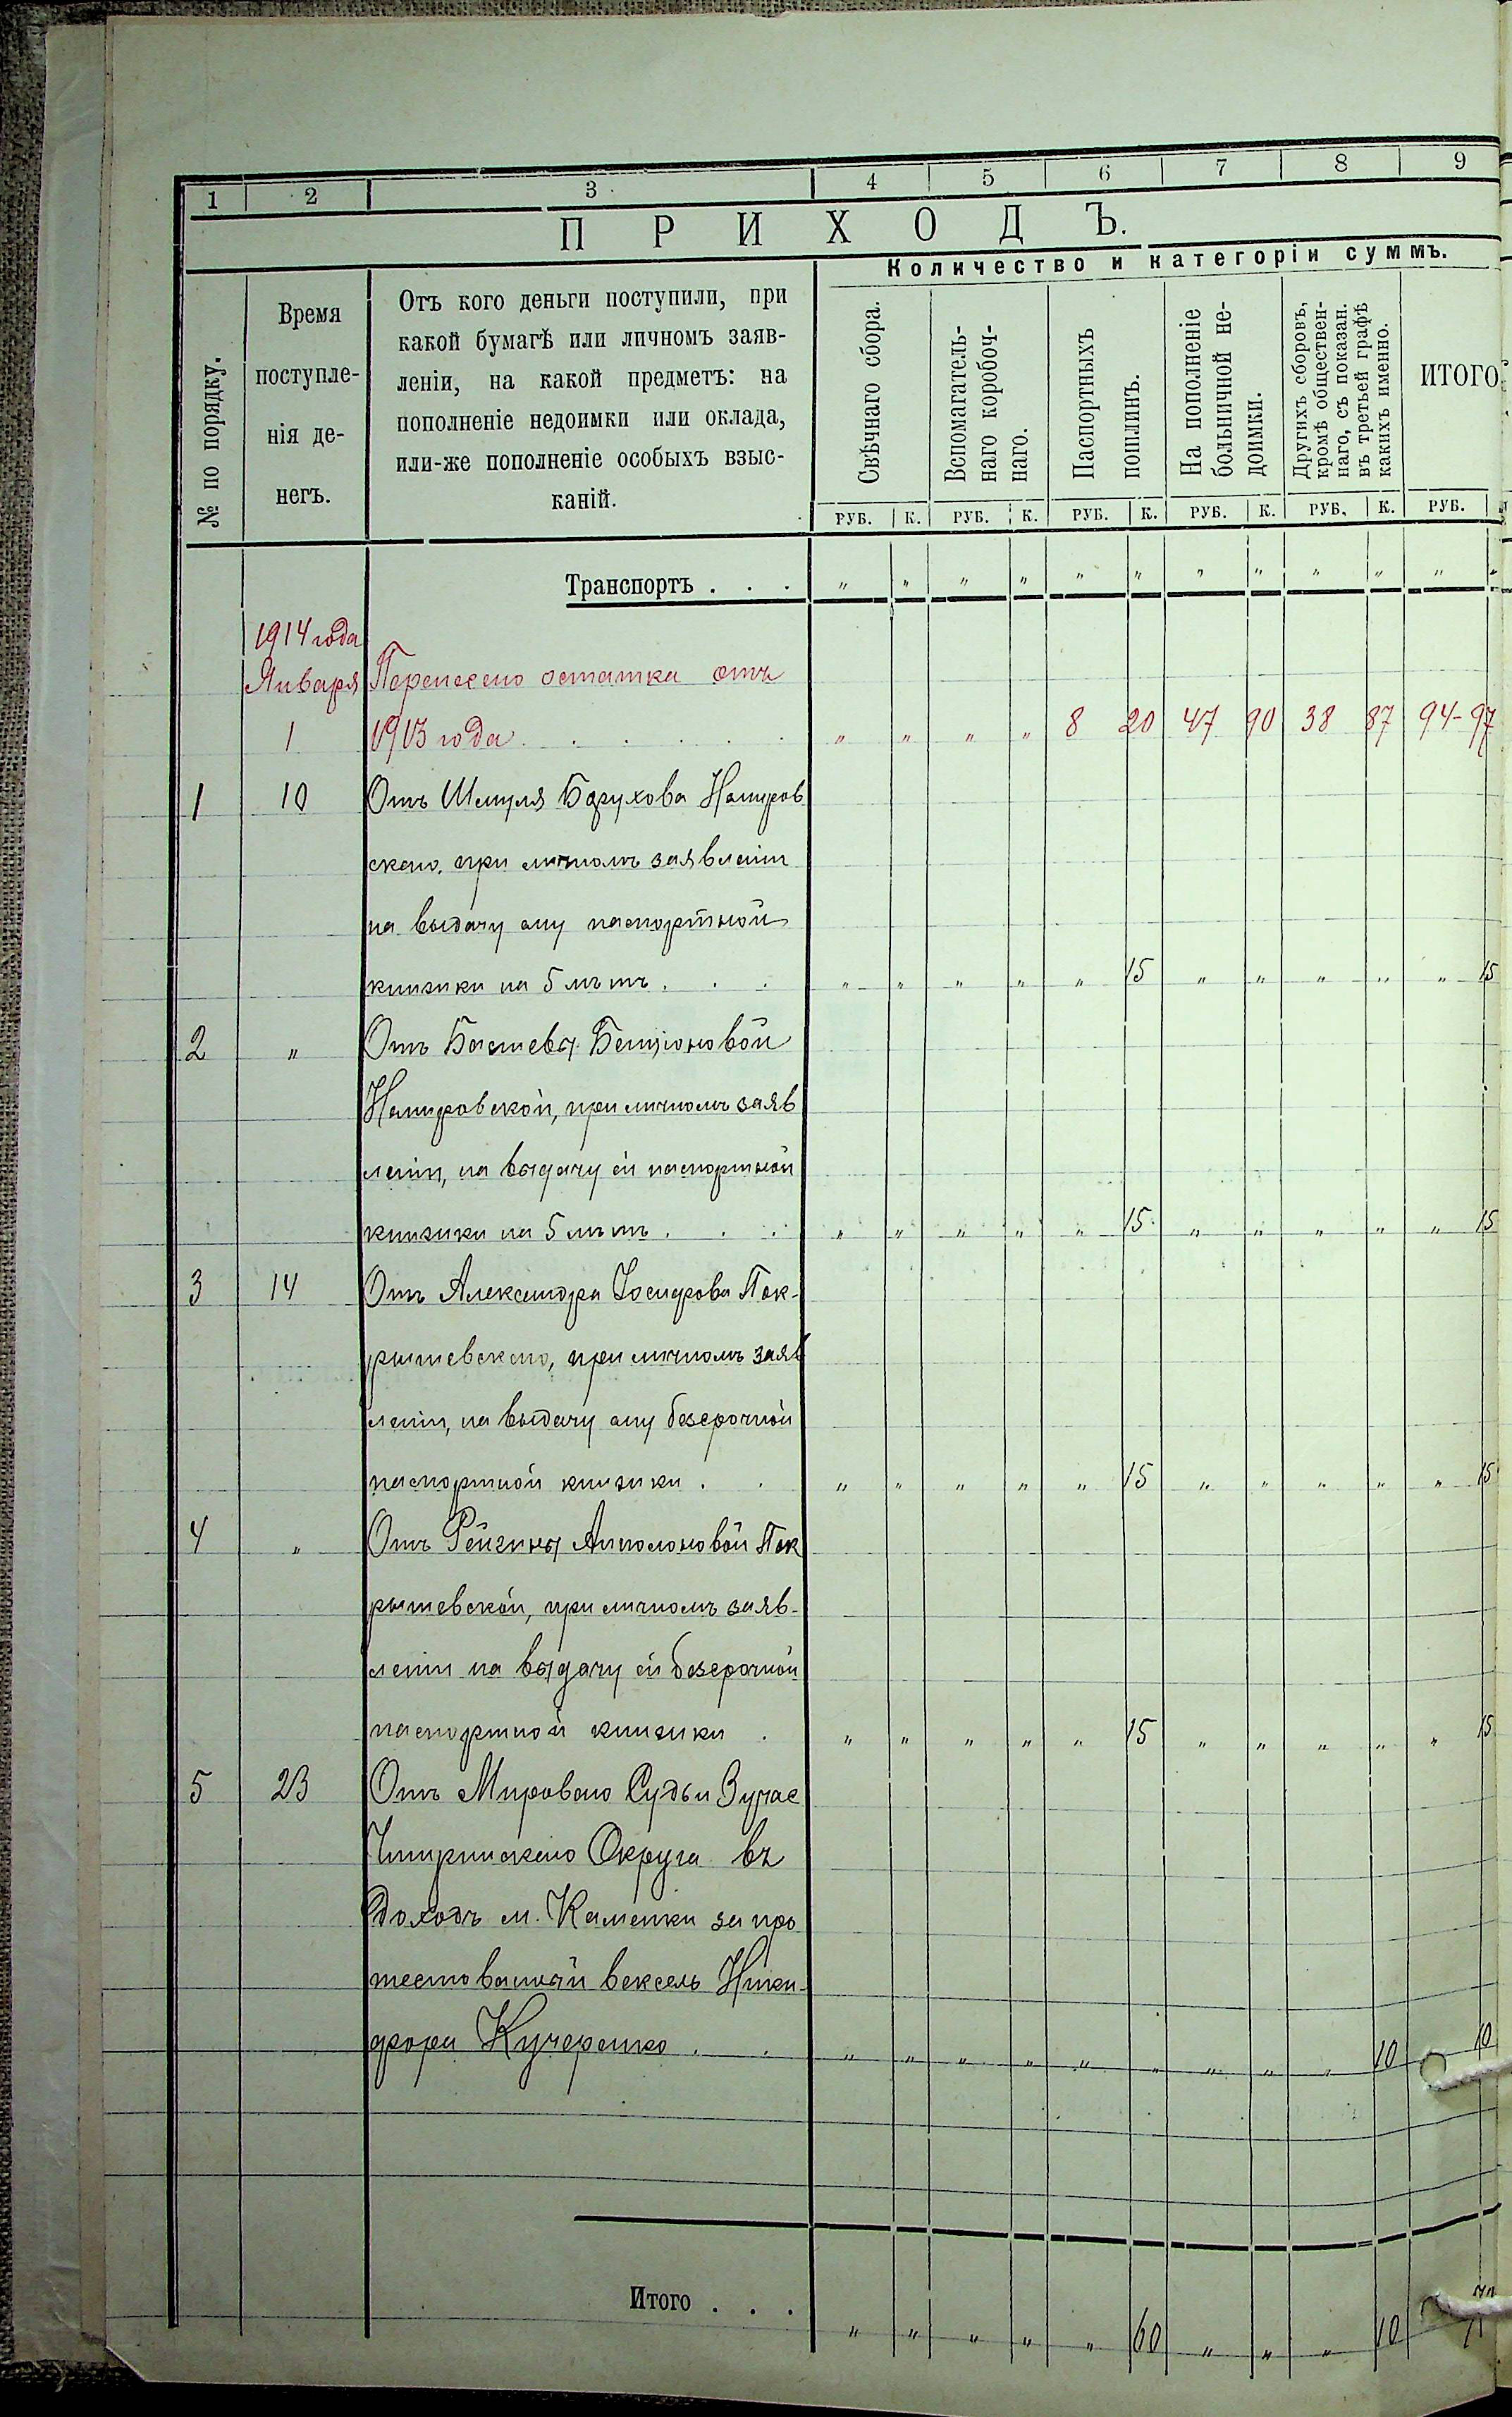 1 2 3 4 5 6 7 8 9
ПРИХОДЪ.
Количество и категоріи суммъ.
№ по порядку.
Время
поступле-
нія де-
негъ.
Отъ кого деньги поступили, при
какой бумагѣ или личномъ заяв-
леніи, на какой предметъ: на
пополненіе недоимки или оклада,
или-же пополненіе особыхъ взыс-
каній.
Свѣчнаго сбора.
Вспомагатель-
наго коробоч-
наго.
Паспортныхъ
пошлинъ.
На пополненіе
больничной не-
доимки.
Другихъ сборовъ,
кромѣ обществен-
наго, съ показан.
въ третьей графѣ
какихъ именно.
ИТОГО
РУБ. К. РУБ. К. РУБ. К. РУБ. К. РУБ. К. РУБ.
Транспортъ . . . " " " " " " " " " " " "
1914 года
Января Перенесено остатка отъ
1 1913 года . . . . . " " " " 8 20 47 90 38 87 94-97
1 10 Отъ Шмуля Барухова Немиров
скаго, при личномъ заявленіи
на выдачу ему паспортной
книжки на 5 лѣтъ . . . " " " " " 15 " " " " " 15
2 " Отъ Басшевы Бенціоновой
Немировской, при личномъ заяв
леніи, на выдачу ей паспортной
книжки на 5 лѣтъ . . . " " " " " 15 " " " " " 15
3 14 Отъ Александра Іосифова Пок-
рышевскаго, при личномъ заяв
леніи, на выдачу ему безсрочной
паспортной книжки . . " " " " " 15 " " " " " 15
4 " Отъ Рейгины Апполоновой Пок
рышевской, при личномъ заяв-
леніи на выдачу ей безсрочной
паспортной книжки . " " " " " 15 " " " " " 15
5 23 Отъ Мирового Судьи 3 учас
Чигиринскаго Округа въ
доходъ м. Каменки за про
тестованный вексель Ники-
фора Кучеренко . . " " " " " " " " " 10 10
Итого . . . " " " " " 60 " " " 10